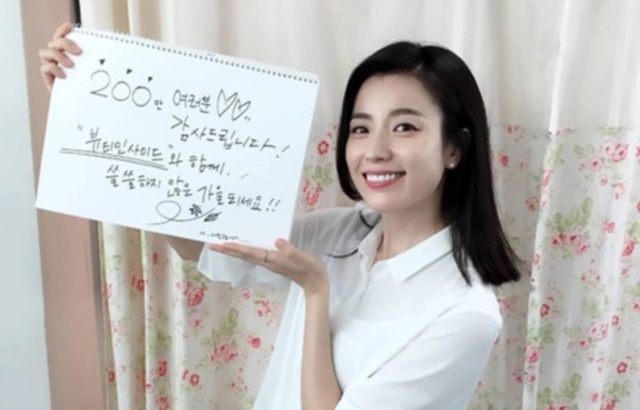 200만 여러분♡♡
감사드립니다!
"뷰티인사이드"와 함께.
쓸쓸하지 않은 가을 되세요!!